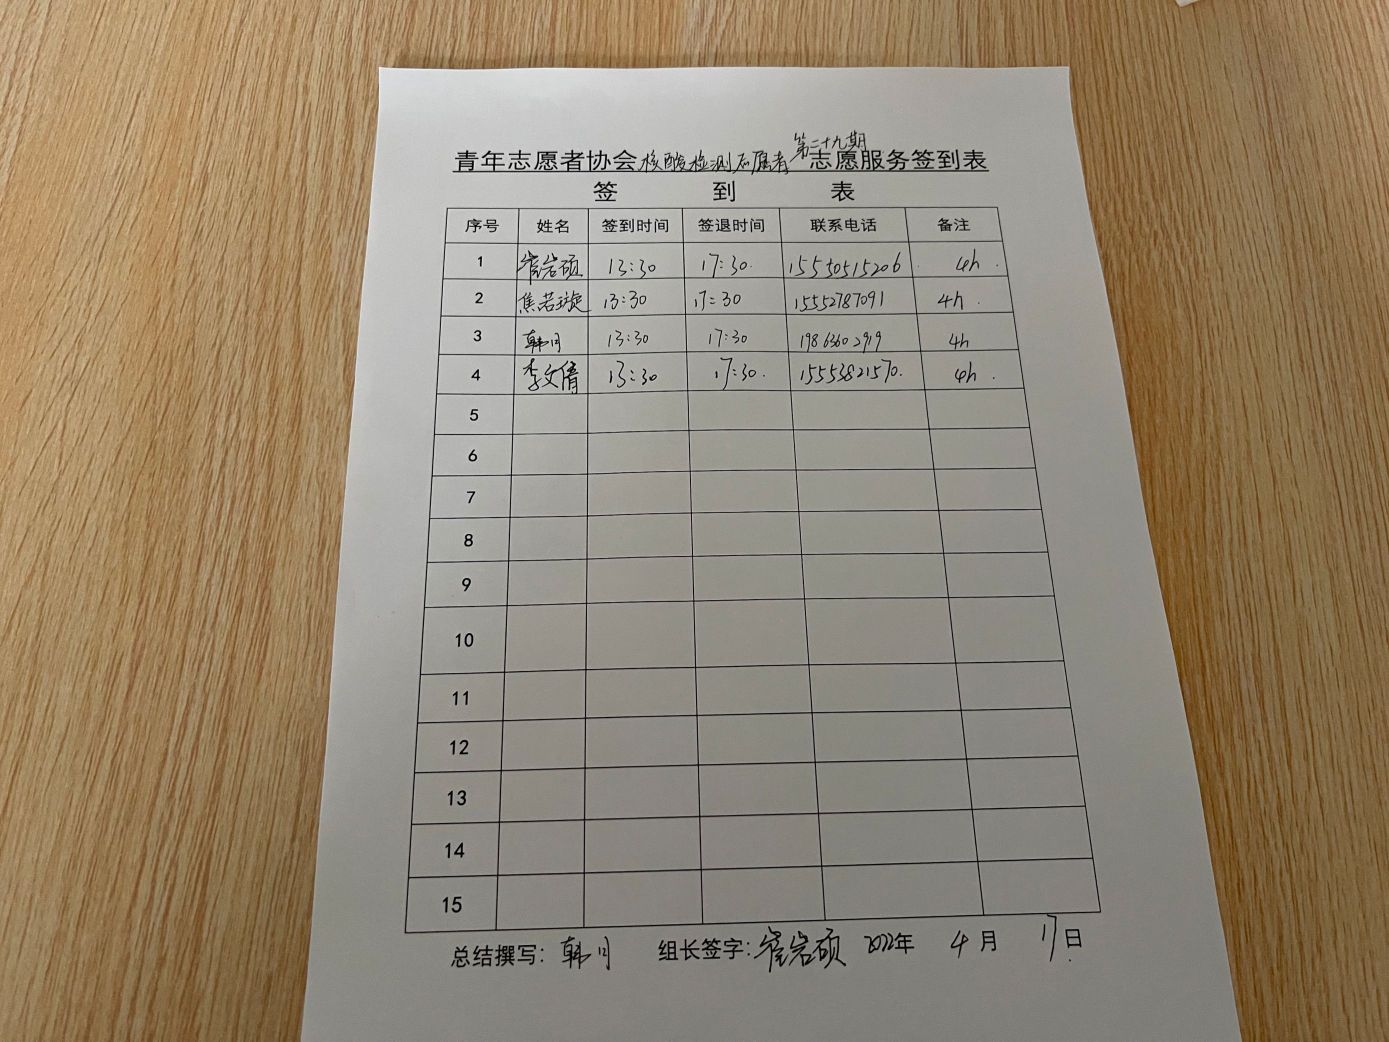 第二十九期
青年志愿者协会核酸检测志愿者志愿服务签到表
签 到 表
序号 姓名 签到时间 签退时间 联系电话 备注
1 崔岩硕 13:30 17:30. 15550515206 4h.
2 焦若璇 13:30 17:30 15552787091 4h.
3 韩月 13:30 17:30 19863602919 4h
4 李文倩 13:30 17:30. 15553821570. 4h.
5
6
7
8
9
10
11
12
13
14
15
总结撰写: 韩月 组长签字: 崔岩硕 2022年 4月 17日